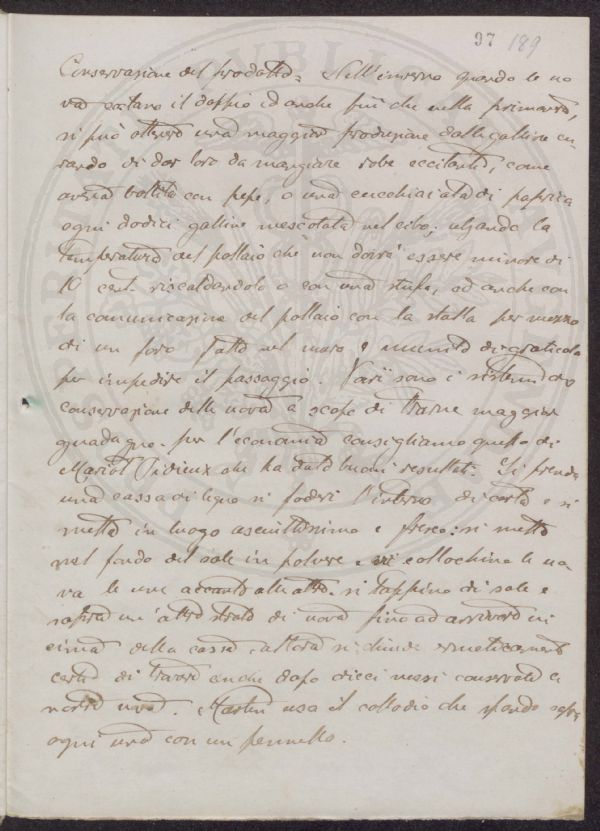 97 189
Conservazione del prodotto = Nell'inverno quando le uo
va costano il doppio ed anche più che nella primavera,
si può ottenere una maggior produzione dalle galline cu
rando di dar loro da mangiare robe eccitanti, come
avena bollita con pepe, o una cucchiaiata di paprica
ogni dodici galline mescolata nel cibo; alzando la
temperatura del pollaio che non dovrà essere minore di
10 cent. riscaldandolo o con una stufa, od anche con
la comunicazione del pollaio con la stalla per mezzo
di un foro fatto nel muro e munito di graticola
per impedire il passaggio. Varii sono i sistemi di
conservazione delle uova a scopo di trarne maggior
guadagno. per l'economia consigliamo quello di
Mariot Didieux che ha dato buoni resultati. Si prenda
una cassa di legno si foderi l'interno di carta e si
metta in luogo asciuttissimo e fresco: si metta
nel fondo del sale in polvere e si collochino le uo
va le une accanto alle altre. si tappino di sale e
sopra un'altro strato di uova fino ad arrivare in
cima della cassa. allora si chiude ermeticamente
certi di trovare anche dopo dieci mesi conservate le
nostre uova. Martin usa il collodio che spande sopra
ogni uovo con un pennello.